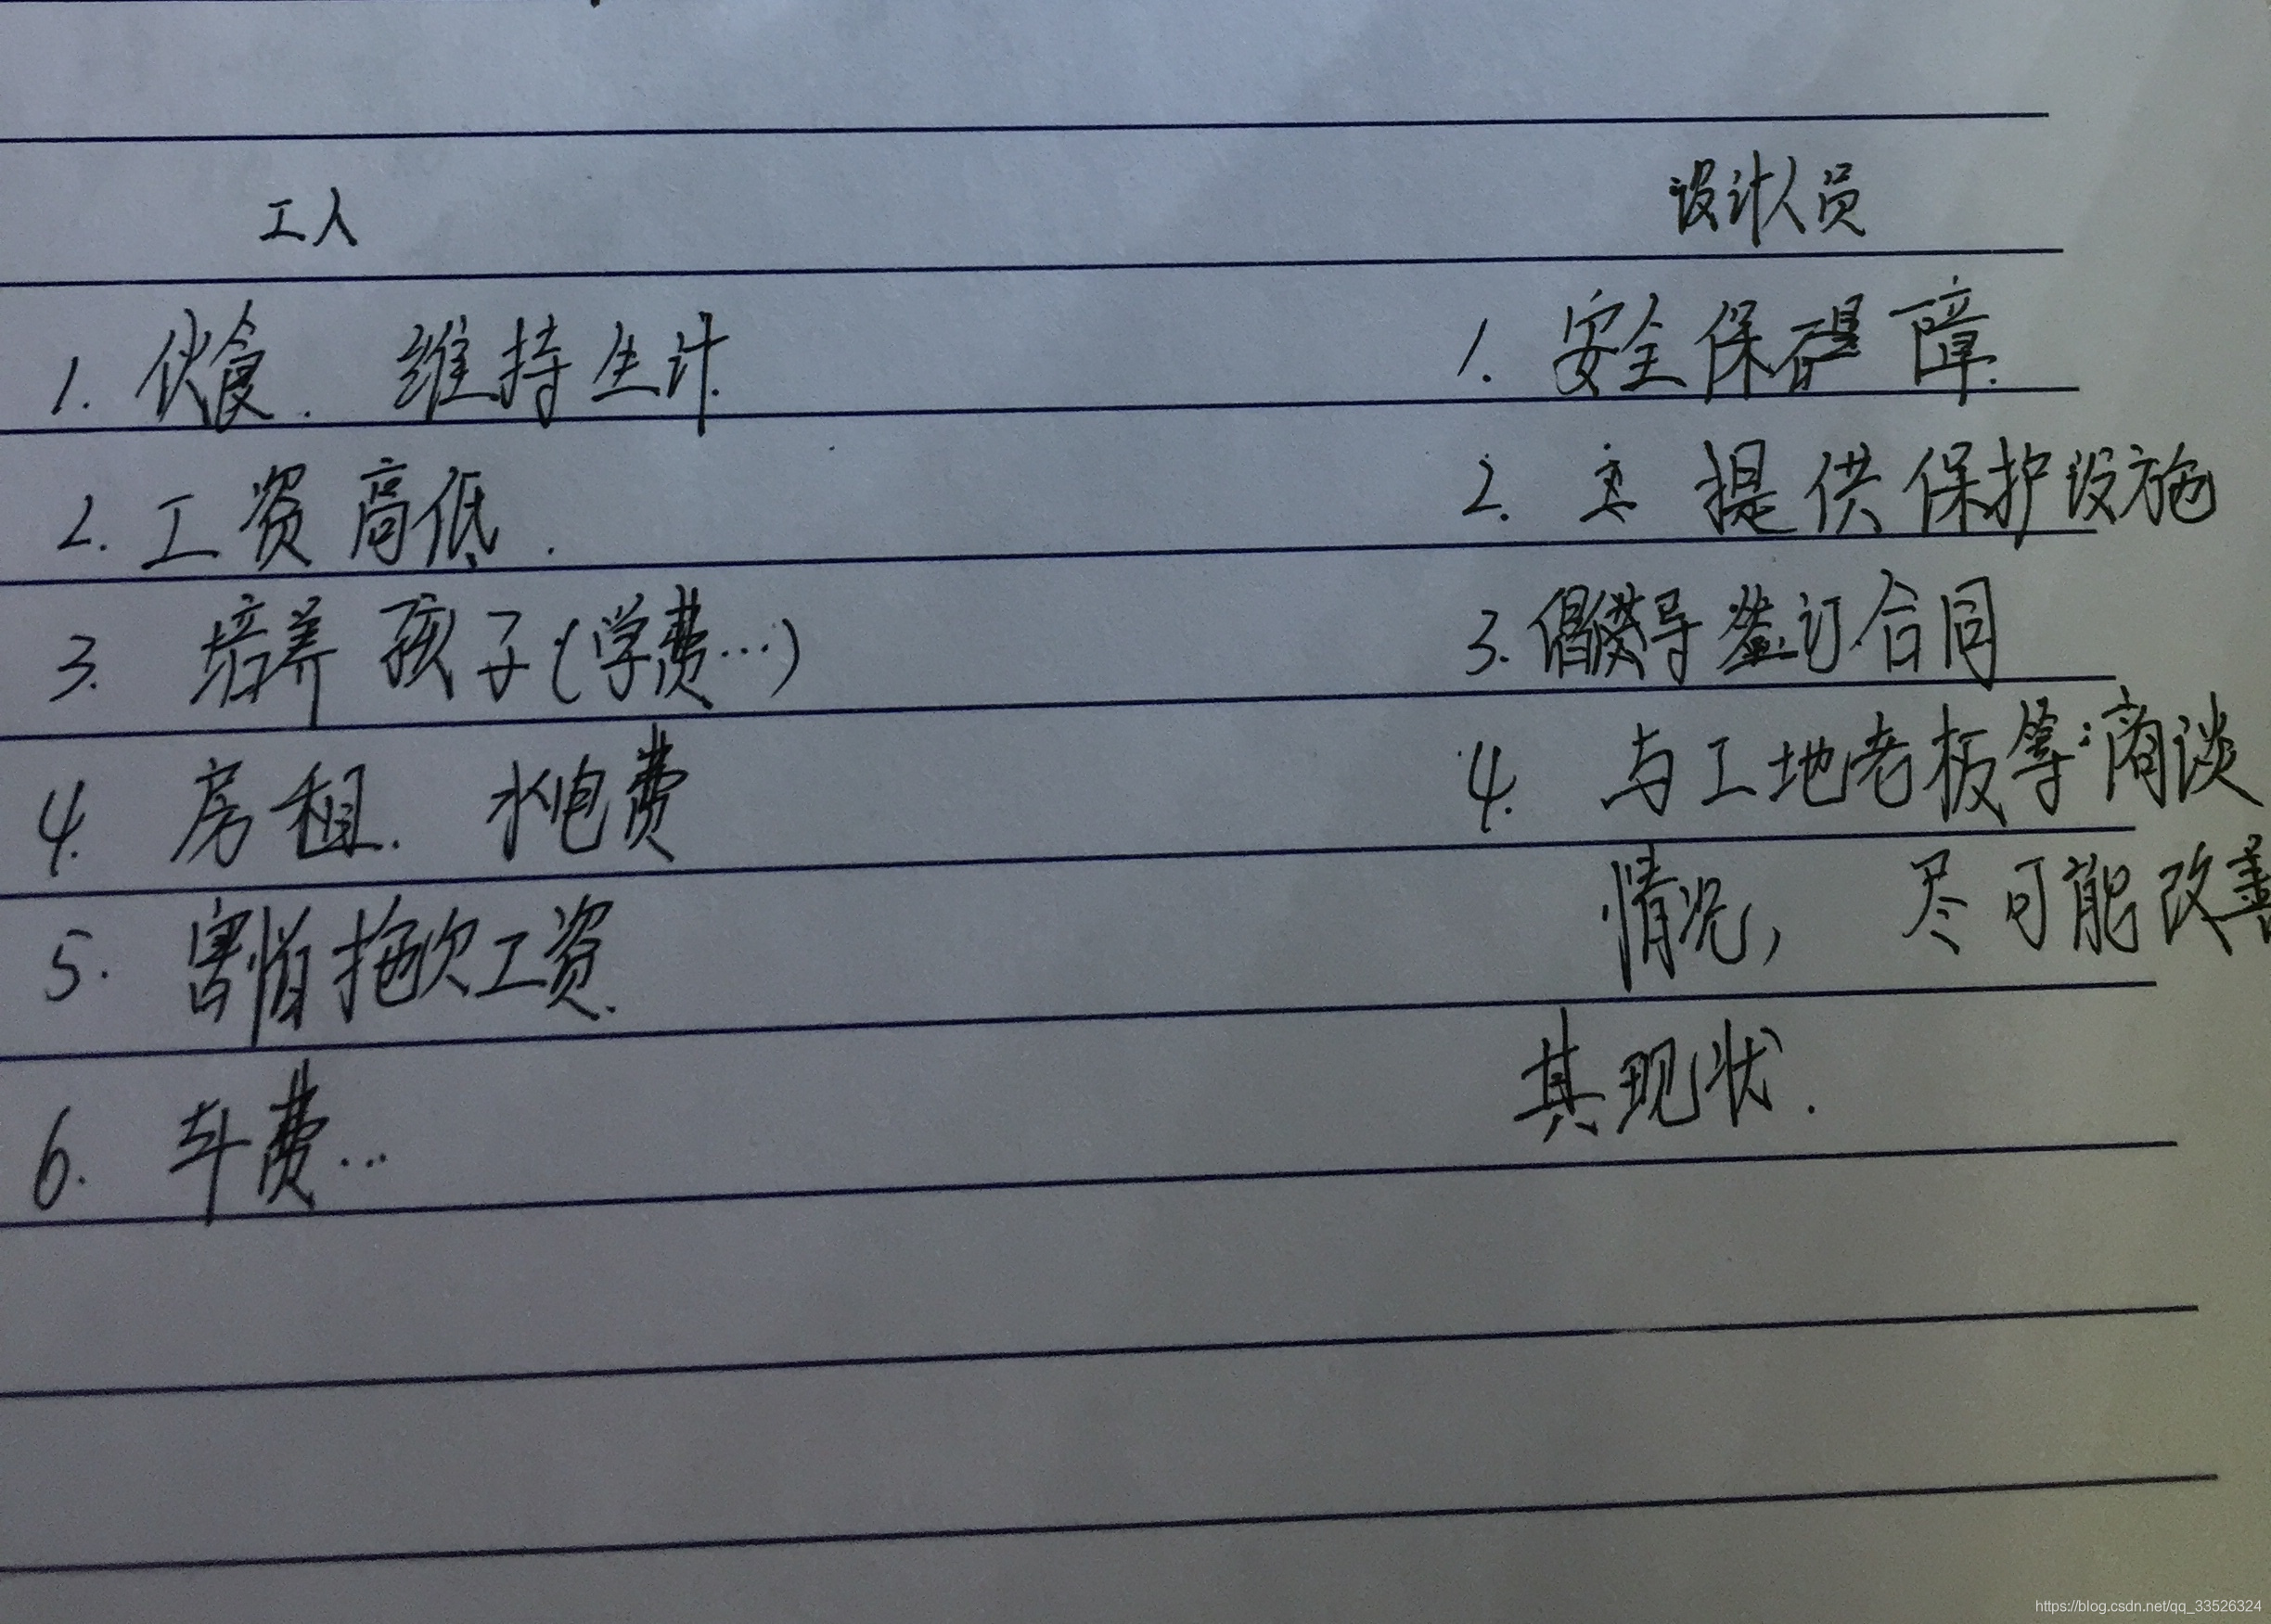 工人
设计人员
1. 伙食. 维持生计
1. 安全保障.
2. 工资高低.
2. 提供保护设施
3. 培养孩子(学费…)
3. 倡导签订合同
4. 房租. 水电费
4. 与工地老板等商谈
情况, 尽可能改善
5. 害怕拖欠工资.
其现状.
6. 车费…
https://blog.csdn.net/qq_33526324